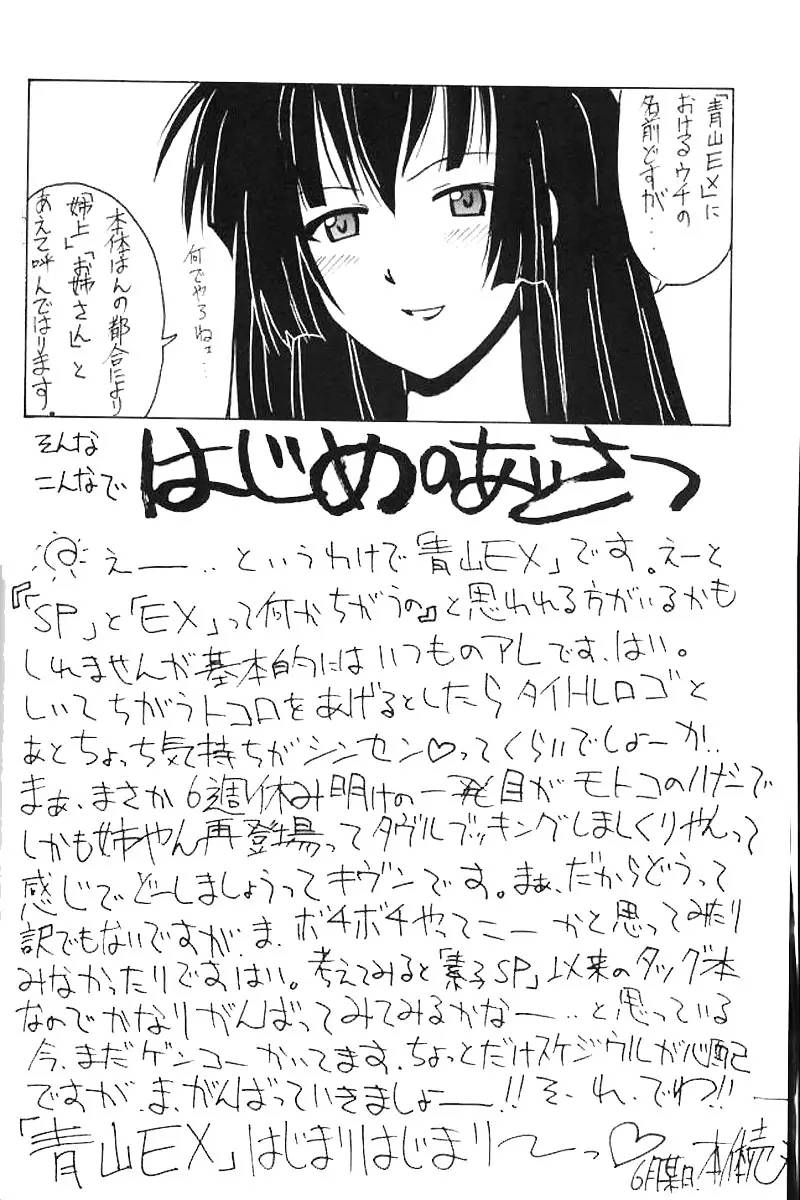 「青山EX」に
おけるウチの
名前どすが…
何でやろねェ…
本体はんの都合により
「姉上」「お姉さん」と
あえて呼んではります。
そんな
こんなで
はじめのあいさつ
えー‥というわけで「青山EX」です。えーと
『「SP」と「EX」って何かちがうの』と思われる方がいるかも
しれませんが基本的にはいつものアレです、はい。
しいてちがうトコロをあげるとしたらタイトルロゴと
あとちょっち気持ちがシンセン♡ってくらいでしょーか‥
まぁ、まさか6週休み明けの一発目がモトコのハダーで
しかも姉やん再登場ってダヴルブッキングしましくりやんって
感じでどーしましょうってキヴンです。まぁ、だからどうって
訳でもないですが、ま、ボチボチやってこーかと思ってみたり
みなかったりですはい。考えてみると「素子SP」以来のタッグ本
なのでかなりがんばってみてみるかなー‥と思っている
今、まだゲンコーかいてます、ちょっとだけスケジウルが心配
ですが、ま、がんばっていきましょー!!そ、れ、でわ!!
「青山EX」はじまりはじまり〜っ♡
6月某日 本体売